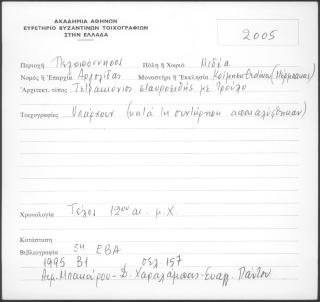 ΑΚΑΔΗΜΙΑ ΑΘΗΝΩΝ
ΕΥΡΕΤΗΡΙΟ ΒΥΖΑΝΤΙΝΩΝ ΤΟΙΧΟΓΡΑΦΙΩΝ
ΣΤΗΝ ΕΛΛΑΔΑ
2005
Περιοχή Πελοπόννησος Πόλη ή Χωριό Μιδέα
Νομός ή Επαρχία Αργολίδας Μοναστήρι ή Εκκλησία Κοίμηση Θεοτόκου
Αρχιτεκτ. τύπος Τετρακιόνιος σταυροειδής με τρούλο
Τοιχογραφίες Υπάρχουν (κατά τη συντήρηση αποκαλύφθηκαν)
Χρονολογία Τέλος 12ου αι. μ.Χ.
Κατάσταση
Βιβλιογραφία 5η ΕΒΑ
1995 Β1 σελ 157
Δημ. Μπακούρου - Δ. Χαραλάμπους - Ευαγγ. Πάντου